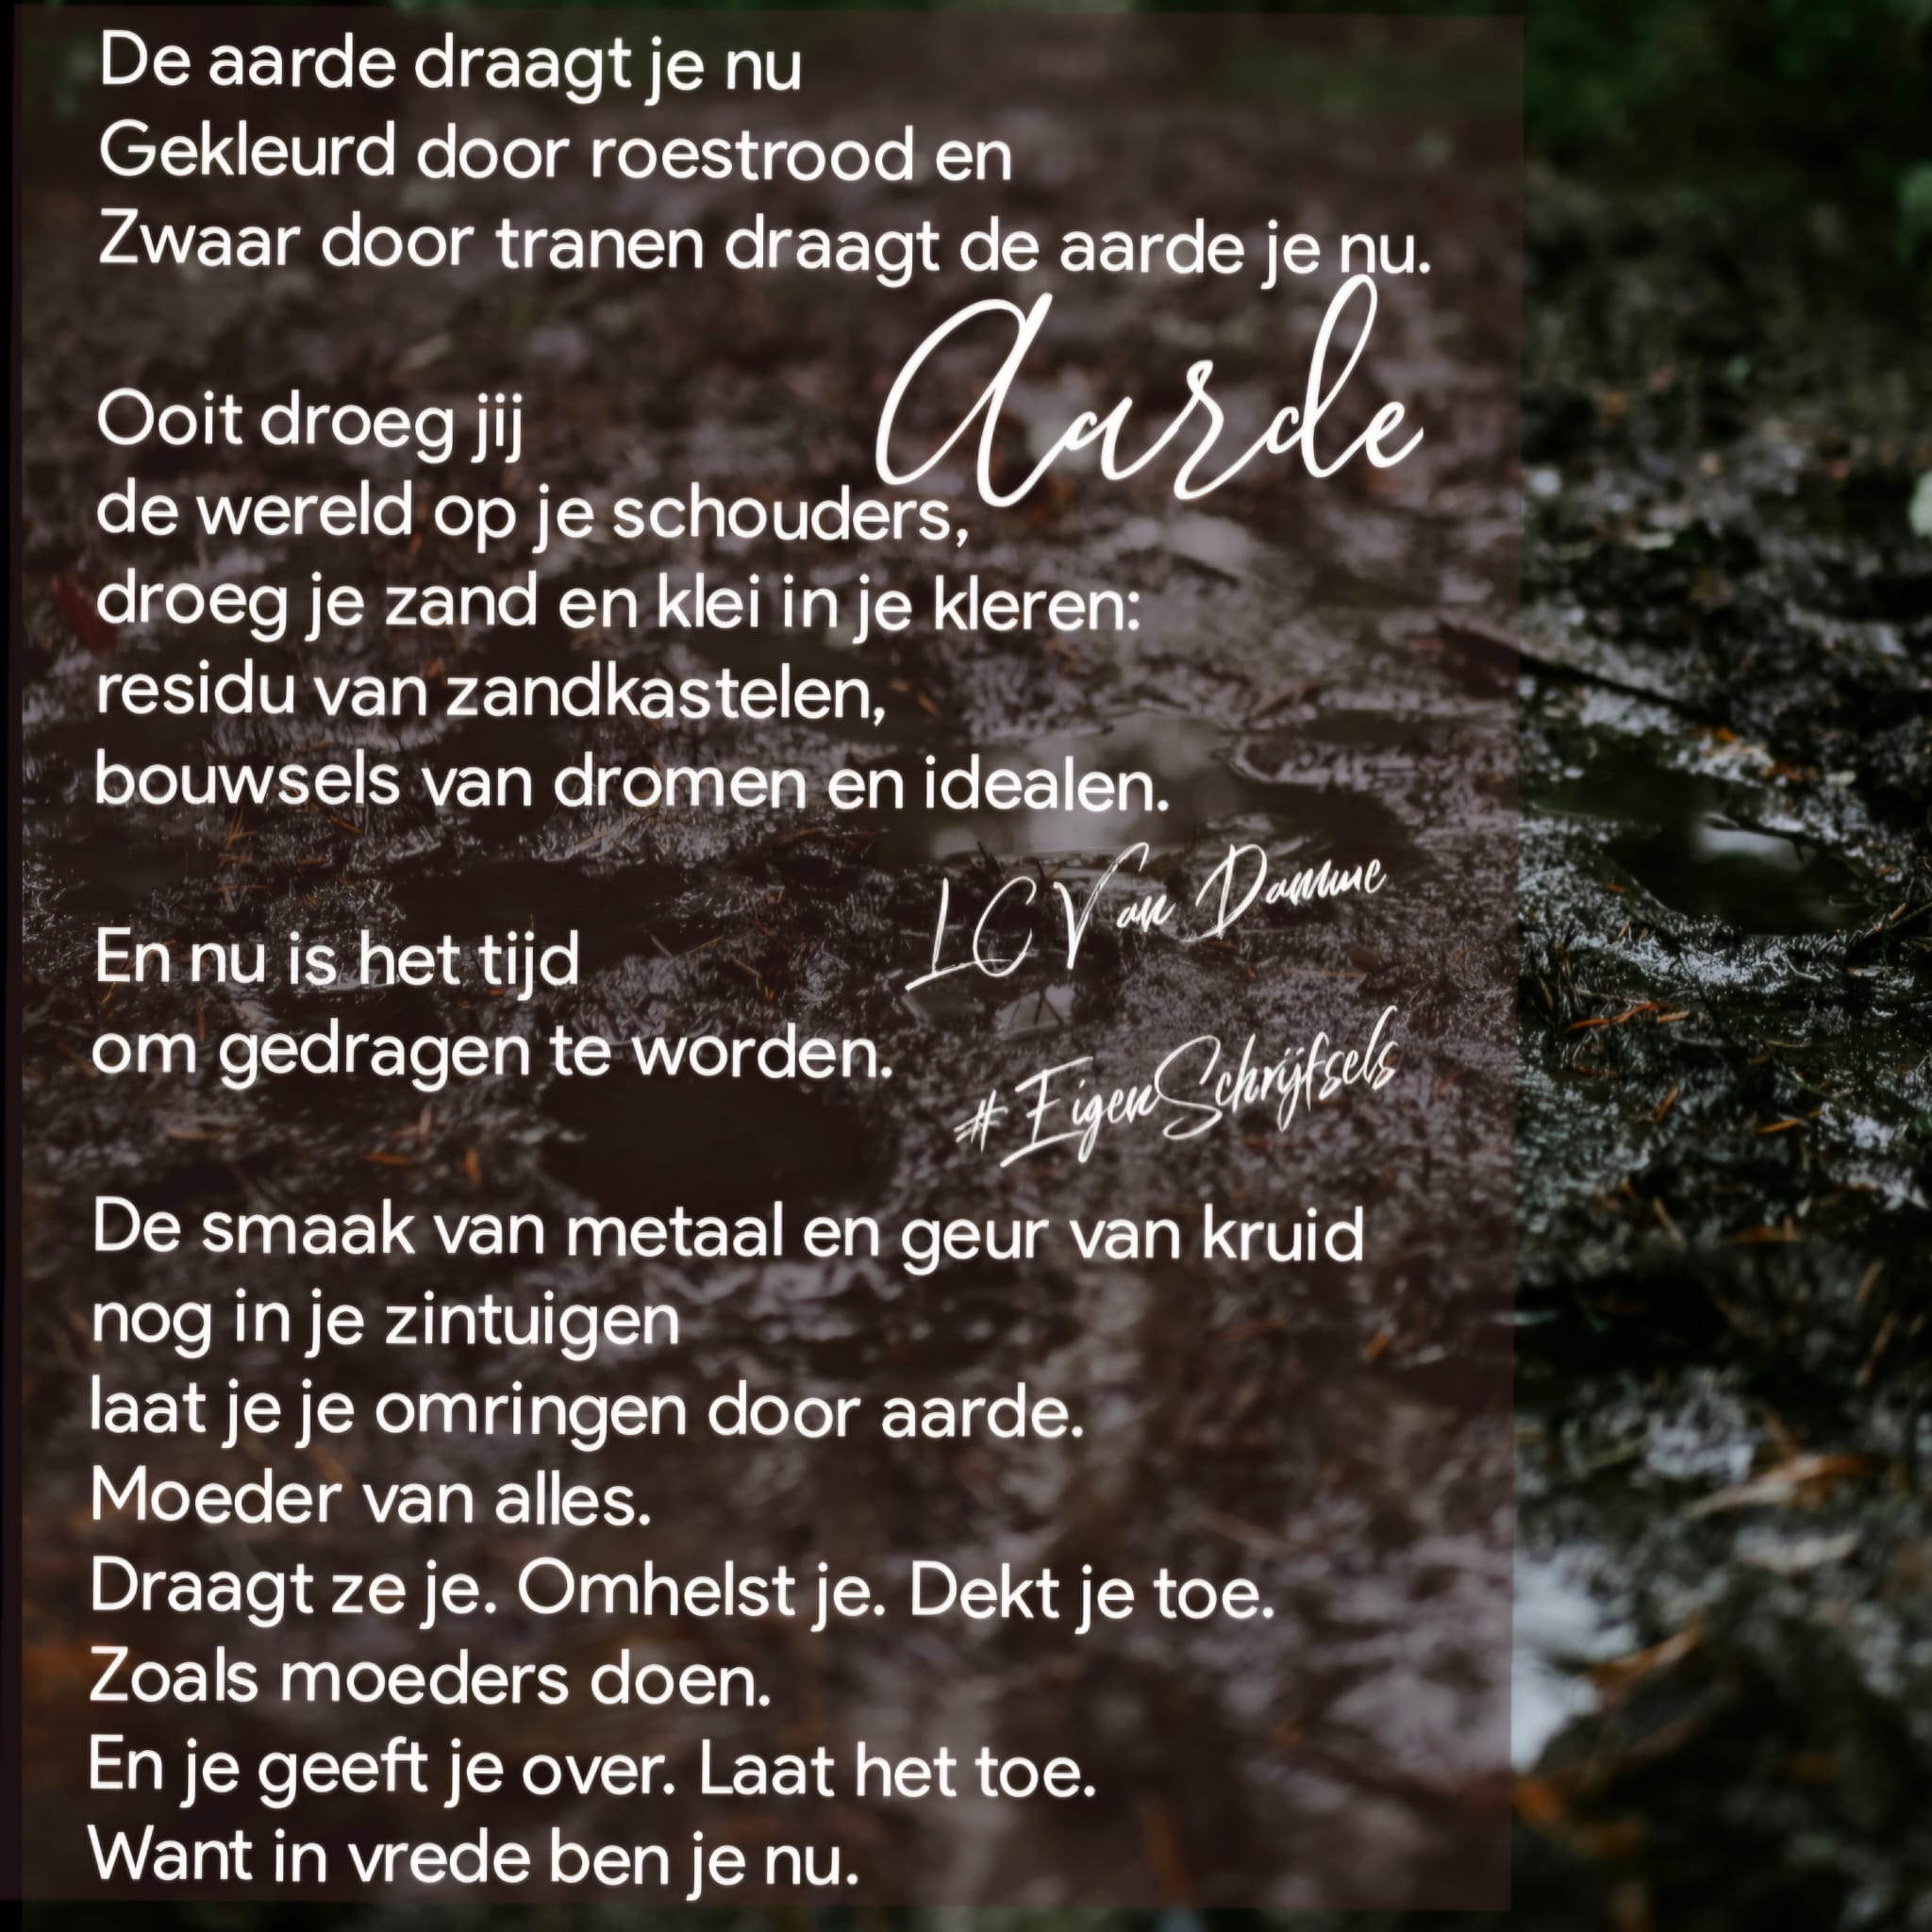 De aarde draagt je nu
Gekleurd door roestrood en
Zwaar door tranen draagt de aarde je nu.
Aarde
Ooit droeg jij
de wereld op je schouders,
droeg je zand en klei in je kleren:
residu van zandkastelen,
bouwsels van dromen en idealen.
LC Van Damme
En nu is het tijd
om gedragen te worden.
#EigenSchrijfsels
De smaak van metaal en geur van kruid
nog in je zintuigen
laat je je omringen door aarde.
Moeder van alles.
Draagt ze je. Omhelst je. Dekt je toe.
Zoals moeders doen.
En je geeft je over. Laat het toe.
Want in vrede ben je nu.